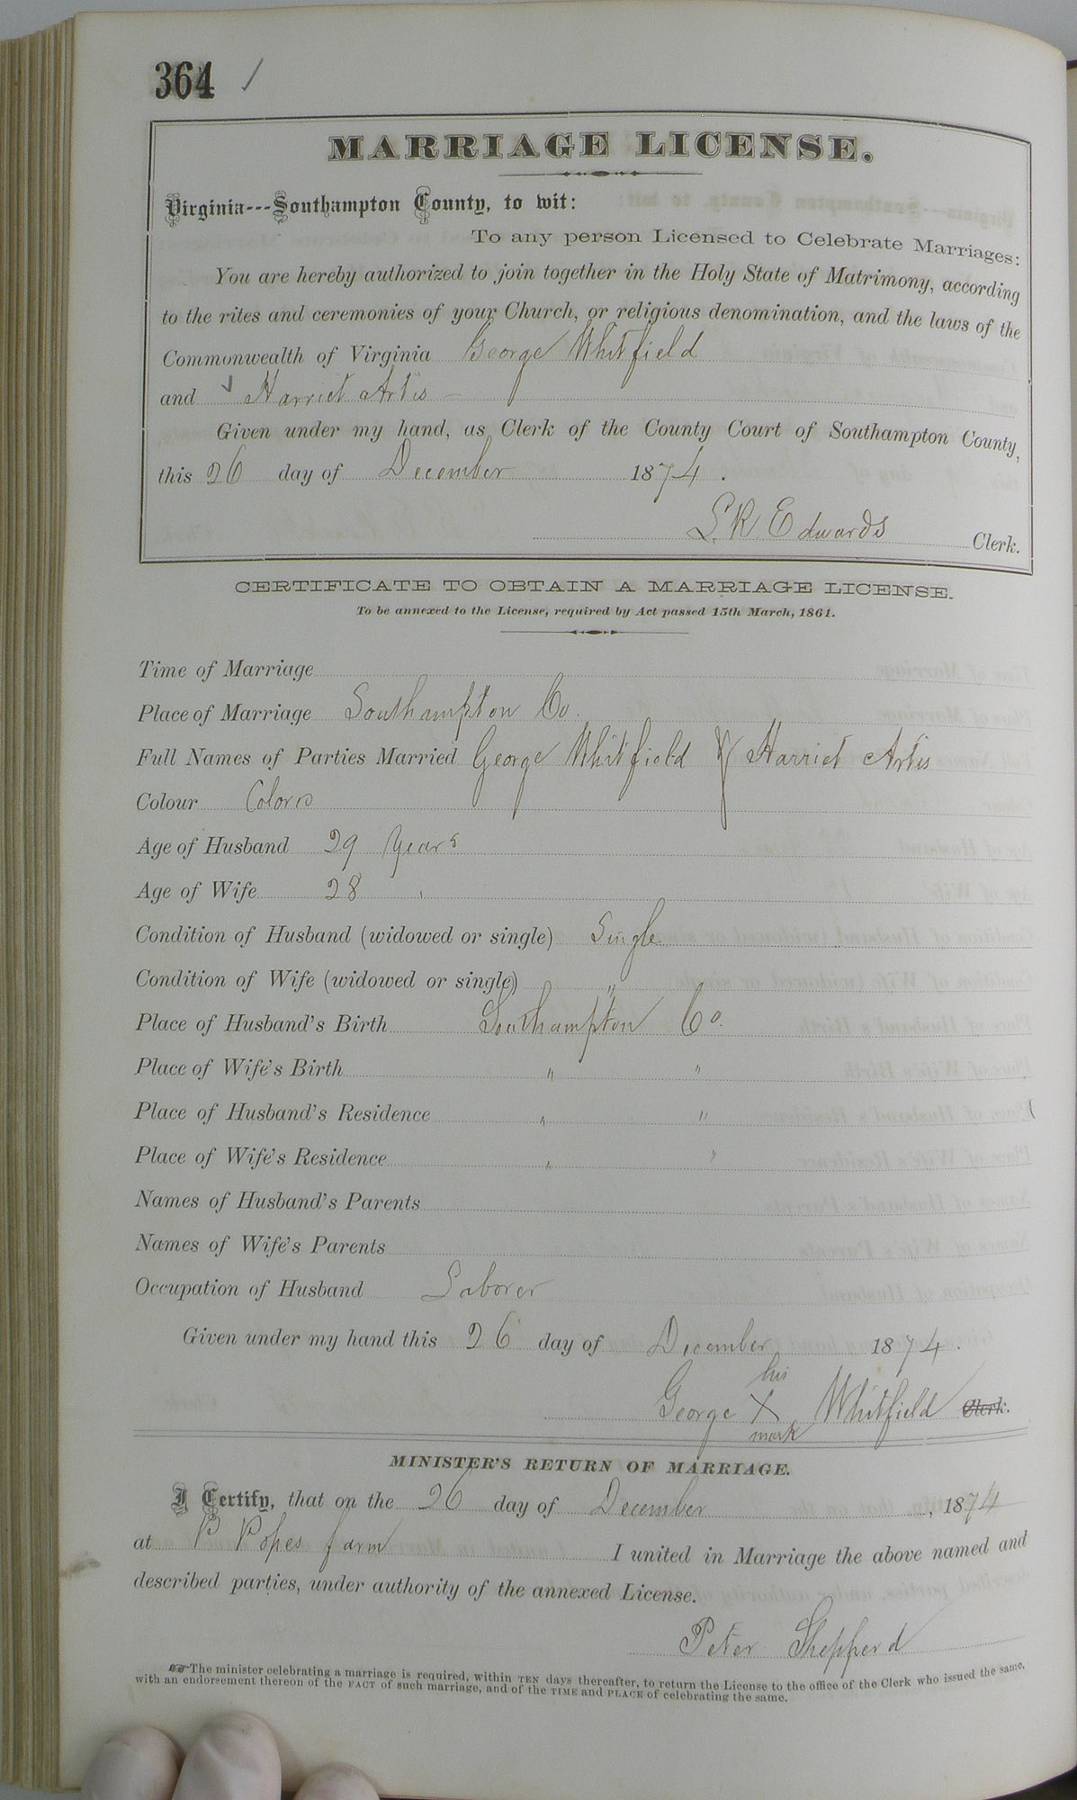 364 /
MARRIAGE LICENSE.
Virginia---Southampton County, to wit:
To any person Licensed to Celebrate Marriages:
You are hereby authorized to join together in the Holy State of Matrimony, according
to the rites and ceremonies of your Church, or religious denomination, and the laws of the
Commonwealth of Virginia George Whitfield
and ✓ Harriet Artis –
Given under my hand, as Clerk of the County Court of Southampton County,
this 26 day of December 1874.
L. R. Edwards Clerk.
CERTIFICATE TO OBTAIN A MARRIAGE LICENSE.
To be annexed to the License, required by Act passed 15th March, 1861.
Time of Marriage
Place of Marriage Southampton Co.
Full Names of Parties Married George Whitfield & Harriet Artis
Colour Colored
Age of Husband 29 Years
Age of Wife 28 "
Condition of Husband (widowed or single) Single
Condition of Wife (widowed or single) "
Place of Husband's Birth Southampton Co.
Place of Wife's Birth " "
Place of Husband's Residence " "
Place of Wife's Residence " "
Names of Husband's Parents
Names of Wife's Parents
Occupation of Husband Laborer
Given under my hand this 26 day of December 1874.
his
George X Whitfield Clerk.
mark
MINISTER'S RETURN OF MARRIAGE.
I Certify, that on the 26 day of December, 1874
at P Popes farm I united in Marriage the above named and
described parties, under authority of the annexed License.
Peter Shepperd
☞ The minister celebrating a marriage is required, within TEN days thereafter, to return the License to the office of the Clerk who issued the same,
with an endorsement thereon of the FACT of such marriage, and of the TIME and PLACE of celebrating the same.